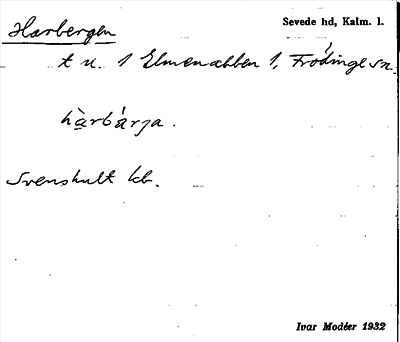 Harbergen
Sevede hd, Kalm. l.
t u. 1 Elmenabben 1, Frödinge sn.
hàrbárja.
Svenshult kb.
Ivar Modéer 1932